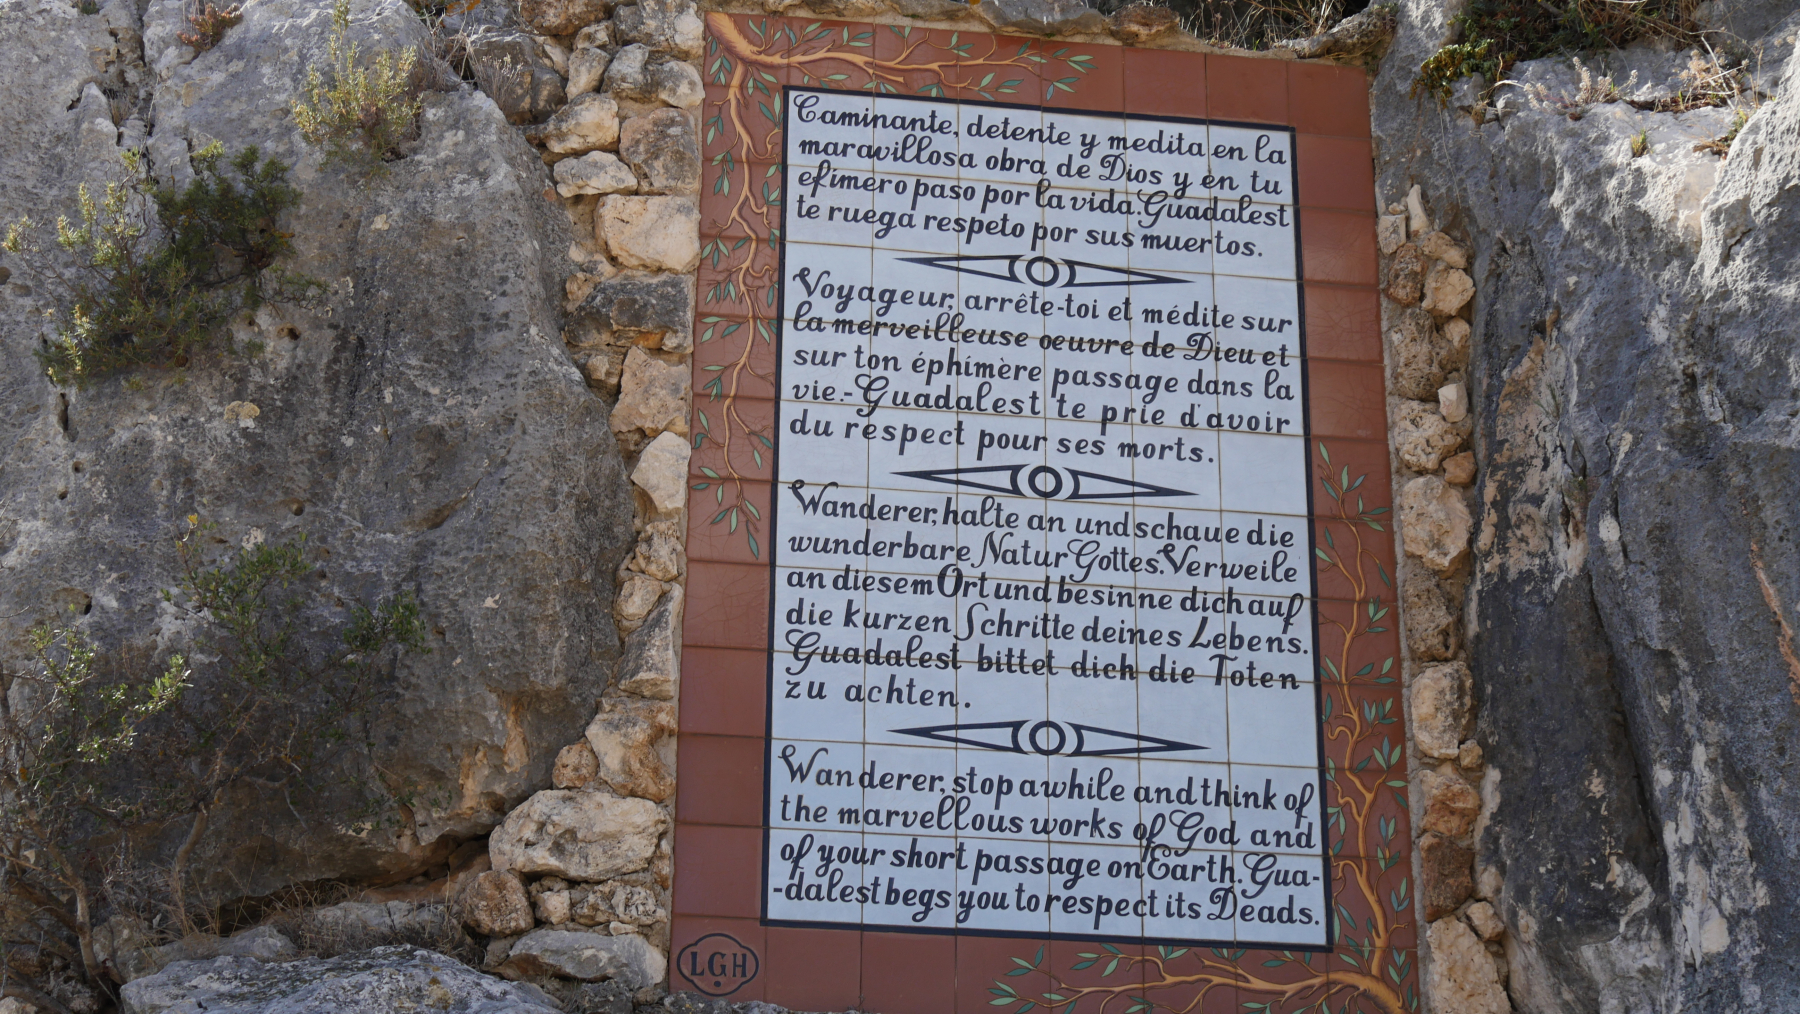 Caminante, detente y medita en la
maravillosa obra de Dios y en tu
efímero paso por la vida. Guadalest
te ruega respeto por sus muertos.
Voyageur, arrête-toi et médite sur
la merveilleuse oeuvre de Dieu et
sur ton éphímère passage dans la
vie.- Guadalest te prie d'avoir
du respect pour ses morts.
Wanderer, halte an und schaue die
wunderbare Natur Gottes. Verweile
an diesem Ort und besinne dich auf
die kurzen Schritte deines Lebens.
Guadalest bittet dich die Toten
zu achten.
Wanderer, stop awhile and think of
the marvellous works of God and
of your short passage on Earth. Gua-
-dalest begs you to respect its Deads.
LGH